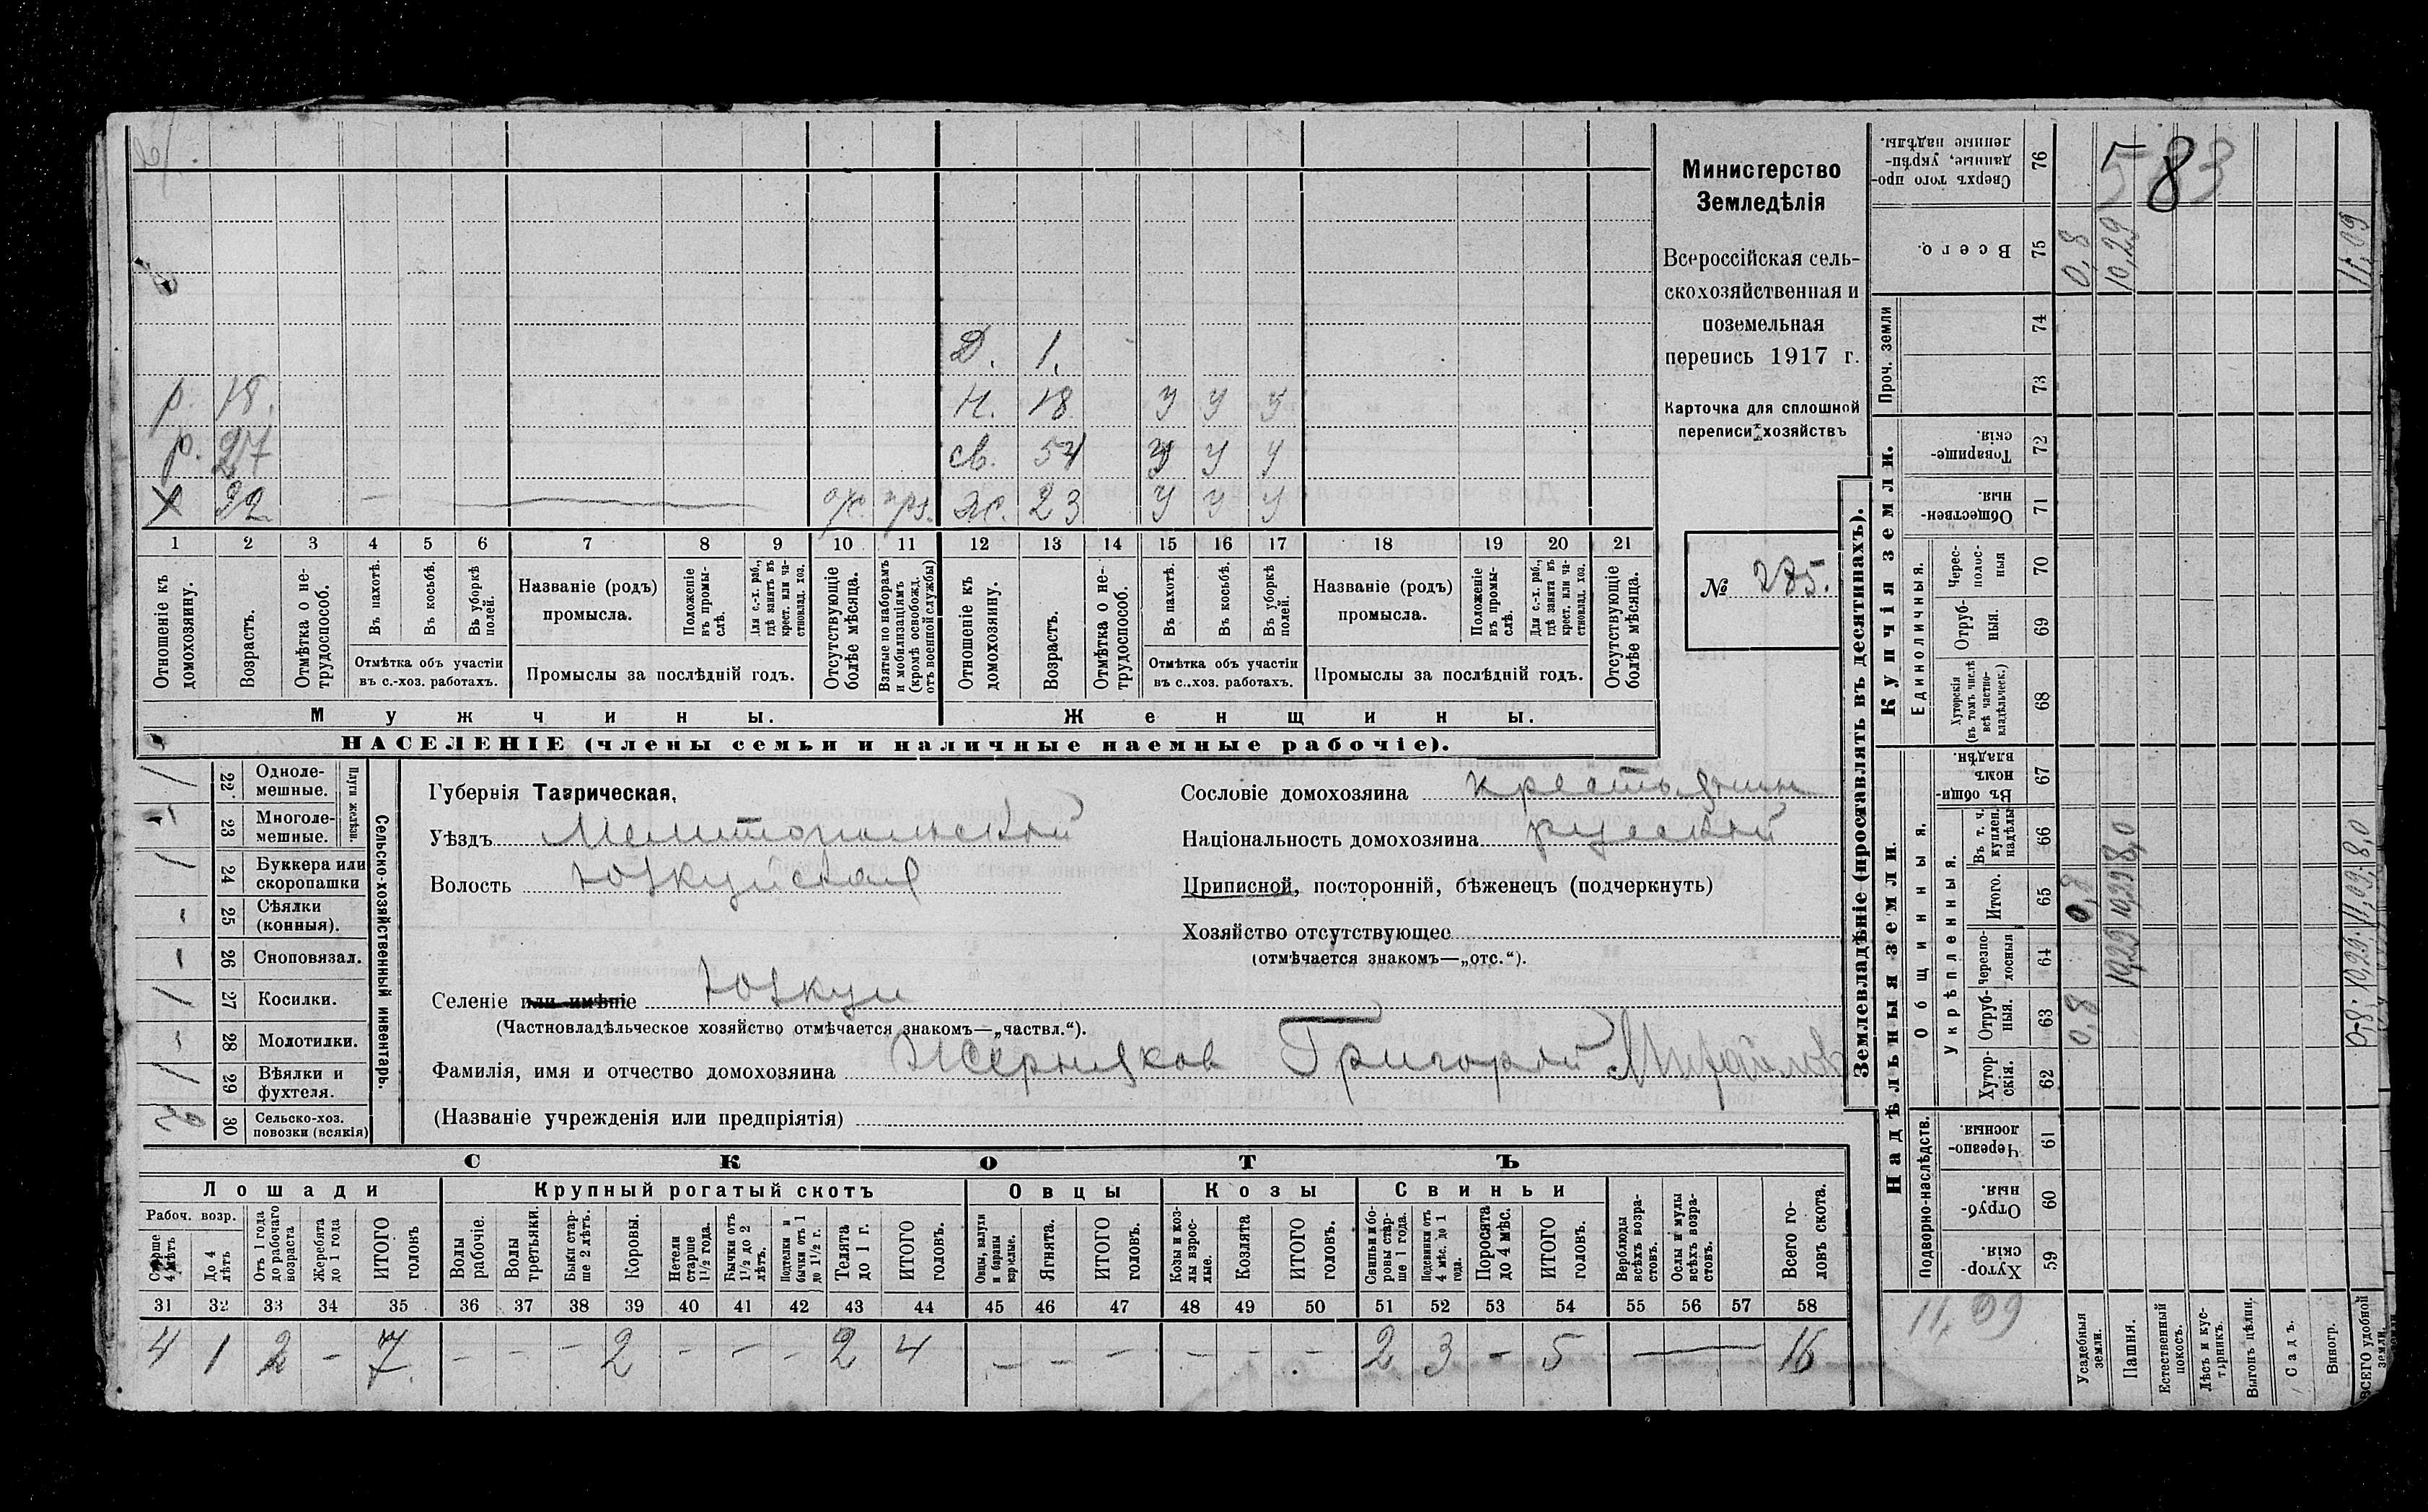 Министерство
Земледѣлія
Всероссійская сель-
скохозяйственная и
поземельная
перепись 1917 г.
Карточка для сплошной
переписи хозяйствъ
№ 285.
583
Д. 1.
р. 18. Н. 18 У У У
р. 27 св. 54 У У У
х 32 — ж. 23 У У У
1 2 3 4 5 6 7 8 9 10 11 12 13 14 15 16 17 18 19 20 21
Отношеніе къ домохозяину.
Возрастъ.
Отмѣтка о не-трудоспособ.
Въ пахотѣ.
Въ косьбѣ.
Въ уборкѣ полей.
Отмѣтка объ участіи
въ с.-хоз. работахъ.
Названіе (родъ)
промысла.
Положеніе въ промы-слѣ.
Для с.-х. раб., гдѣ занятъ въ крест. или ча-стновлад. хоз.
Промыслы за послѣдній годъ.
Отсутствующіе болѣе мѣсяца.
Взятые по наборамъ и мобилизаціямъ (кромѣ освобожд. отъ военной службы)
Отношеніе къ домохозяину.
Возрастъ.
Отмѣтка о не-трудоспособ.
Въ пахотѣ.
Въ косьбѣ.
Въ уборкѣ полей.
Отмѣтка объ участіи
въ с.-хоз. работахъ.
Названіе (родъ)
промысла.
Положеніе въ промы-слѣ.
Для с.-х. раб., гдѣ занятъ въ крест. или ча-стновлад. хоз.
Промыслы за послѣдній годъ.
Отсутствующіе болѣе мѣсяца.
Мужчины. Женщины.
НАСЕЛЕНІЕ (члены семьи и наличные наемные рабочіе).
Сельско-хозяйственный инвентарь.
Плуги желѣзн.
/ 22 Одноле-мешные.
23 Многоле-мешные.
/ 24 Буккера или скоропашки
25 Сѣялки (конныя).
26 Сноповязал.
/ 27 Косилки.
28 Молотилки.
/ 29 Вѣялки и фухтеля.
2 30 Сельско-хоз. повозки (всякія)
Губернія Таврическая,
Уѣздъ Мелитопольский
Волость Юзкуйская
Селеніе или имѣніе Юзкуи
(Частновладѣльческое хозяйство отмѣчается знакомъ—„частвл.“).
Фамилія, имя и отчество домохозяина Жерняков Григорий Михайлов
(Названіе учрежденія или предпріятія)
Сословіе домохозяина крестьянин
Національность домохозяина русский
Приписной, посторонній, бѣженецъ (подчеркнуть)
Хозяйство отсутствующее
(отмѣчается знакомъ—„отс.“).
СКОТЪ
Лошади Крупный рогатый скотъ Овцы Козы Свиньи
Рабоч. возр.
Старше 4 лѣтъ
До 4 лѣтъ
Отъ 1 года до рабочаго возраста
Жеребята до 1 года
ИТОГО головъ
Волы рабочіе.
Волы третьяки.
Быки стар-ше 2 лѣтъ.
Коровы.
Нетели старше 1½ года.
Бычки отъ 1½ до 2 лѣтъ.
Подтелки и бычки отъ 1 до 1½ г.
Телята до 1 г.
ИТОГО головъ.
Овцы, валухи и бараны взрослые.
Ягнята.
ИТОГО головъ.
Козы и коз-лы взрос-лые.
Козлята
ИТОГО головъ.
Свиньи и бо-ровы стар-ше 1 года.
Подсвинки отъ 4 мѣс. до 1 года.
Поросята до 4 мѣс.
ИТОГО головъ.
Верблюды всѣхъ возра-стовъ.
Ослы и мулы всѣхъ возра-стовъ.
Всего го-ловъ скота.
31 32 33 34 35 36 37 38 39 40 41 42 43 44 45 46 47 48 49 50 51 52 53 54 55 56 57 58
4 1 2 - 7 - - - 2 - - - 2 4 - - - - - - 2 3 - 5 — 16
Землевладѣніе (проставлять въ десятинахъ).
Купчія земли.
Надѣльныя земли.
Сверхъ того про-данные, укрѣп-ленные надѣлы. 76
Всего. 75 0,8 10,29 11,09
Проч. земли
74
73
Товарище-скія. 72
Обществен-ныя. 71
Единоличныя.
Черес-полос-ныя 70
Отруб-ныя. 69
Хуторскія (въ томъ числѣ всѣ частно-владѣльческ.) 68
Общинныя.
Въ общи-номъ владѣн. 67
Укрѣпленныя.
Въ т. ч. куплен. надѣлы 66 8,0 8,0
Итого. 65 0,8 10,29 11,09
Черезпо-лосныя 64 10,29 10,29
Отруб-ныя. 63 0,8 0,8
Хутор-скія. 62
Подворно-наслѣдств.
Черезпо-лосныя. 61
Отруб-ныя. 60
Хутор-скія. 59
11,09
Усадебныя земли.
Пашня.
Естественный покосъ.
Лѣсъ и кус-тарникъ.
Выгонъ цѣлин.
Садъ.
Виногр.
ВСЕГО удобной земли.